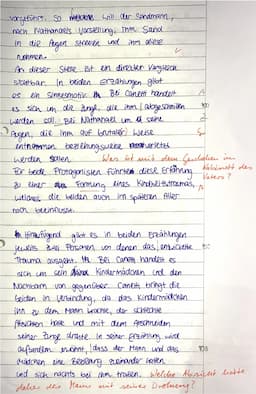 vorgeführt. So will der Sandmann,
nach Nathanaels Vorstellung, ihm Sand
in die Augen streuen und ihm diese
nehmen.
An dieser Stelle ist ein direkter Vergleich
ziehbar. In beiden Erzählungen gibt
es ein Sinnesmotiv. Bei Canetti handelt
es sich um die Zunge, die ihm abgeschnitten
werden soll. Bei Nathanael um seine
Augen, die ihm auf brutaler Weise
entnommen beziehungsweise
werden sollen.
Was ist mit dem Geschehen im
des
Vaters?
Für beide Protagonisten führt diese Erfahrung
zu einer Formung eines Kindheitstraumas,
welches die beiden auch im späteren Alter
noch beeinflusst.
Hinzufügend gibt es in beiden Erzählungen
jeweils zwei Personen, von denen das
Trauma ausgeht. Bei Canetti handelt es
sich um sein Kindermädchen und den
Nachbarn von gegenüber. Canetti bringt die
beiden in Verbindung, da das Kindermädchen
ihn zu dem Mann brachte, der
hatte und mit dem Abschneiden
seiner Zunge drohte. In seiner Erzählung wird
außerdem erwähnt, dass der Mann und das
Mädchen eine Beziehung zueinander hatten
und sich nachts bei ihm trafen.
Welche Absicht hatte
daher der Mann mit seiner Drohung?